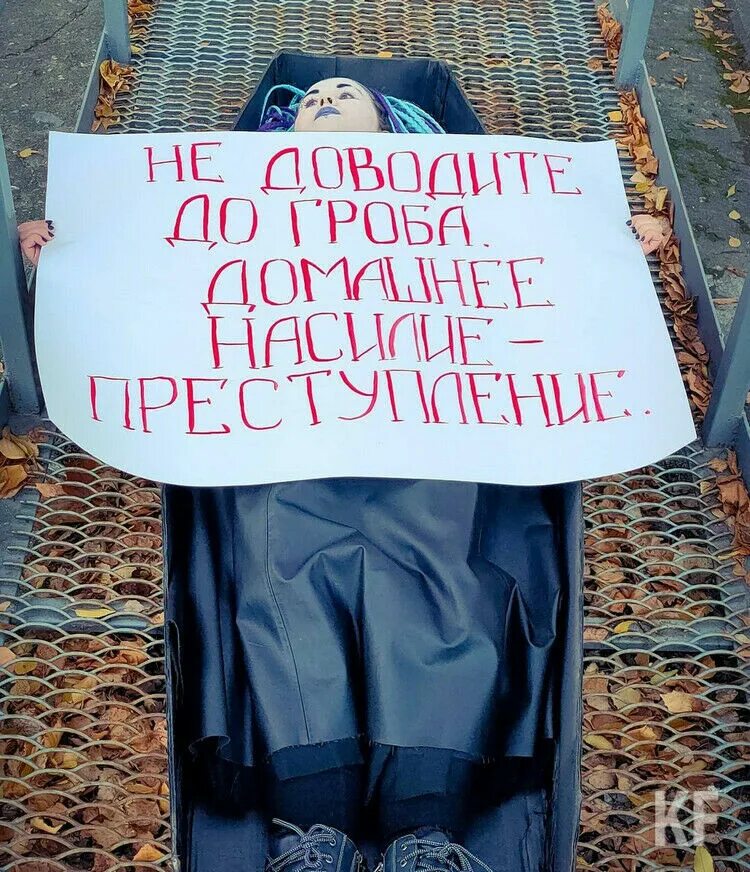 НЕ ДОВОДИТЕ
ДО ГРОБА.
ДОМАШНЕЕ
НАСИЛИЕ –
ПРЕСТУПЛЕНИЕ.
KF